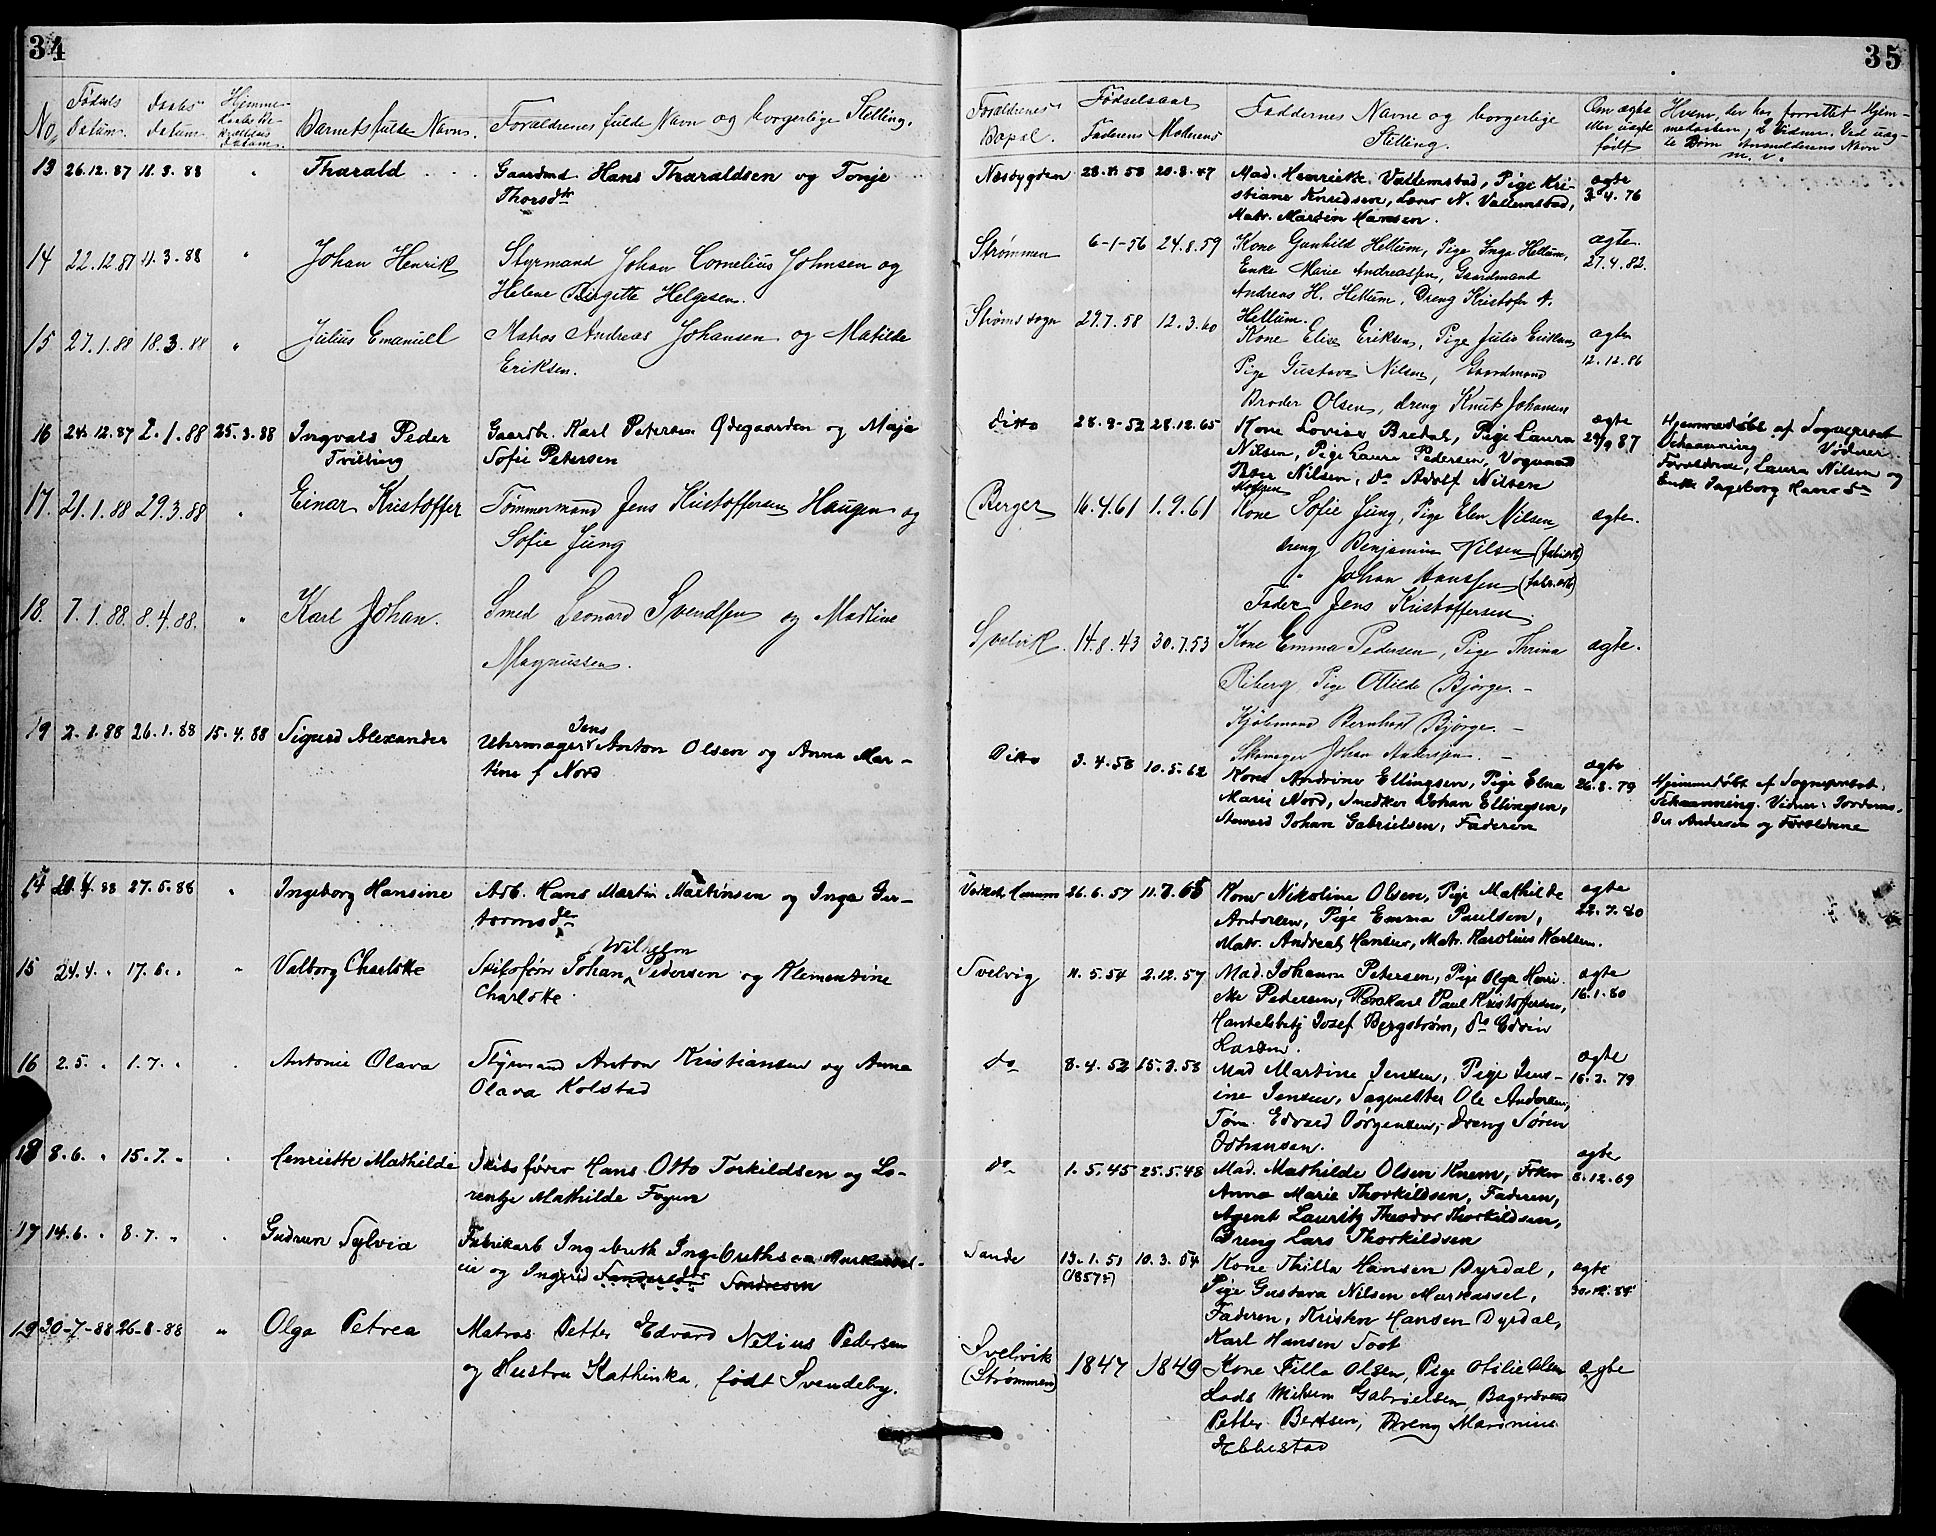 34
No.
Fødsels
Datum.
Daabs
Datum.
Hjemme-
daabs Be-
kræftelses
Datum.
Barnets fulde Navn.
Forældrenes fulde Navn og borgerlige Stilling.
13 26.12.87 11.3.88 " Tharald Gaardmd. Hans Tharaldsen og Tonje
Thorsdtr
14 22.12.87 11.3.88 " Johan Henrik Styrmand Johan Cornelius Johnsen og
Helene Birgitte Helgesen.
15 27.1.88 18.3.88 " Julius Emanuel Matros Andreas Johansen og Matilde
Eriksen.
16 24.12.87 2.1.88 25.3.88 Ingvald Peder Gaardbr. Karl Petersen Ødegaarden og Maja
Tvilling Sofie Petersen
17. 21.1.88 29.3.88 " Einar Kristoffer Tømmermand Jens Kristoffersen Haugen og
Sofie Jung
18. 7.1.88. 8.4.88. " Karl Johan. Smed Leonard Svendsen og Madtine
Magnussen.
19 2.1.88 26.1.88 15.4.88 Sigurd Alexander Uhrmager Jens Anton Olsen og Anna Mar-
tine f Nord
14 20.4.88 27.5.88 " Ingeborg Hansine Arb. Hans Martin Martinsen og Inga Gu-
tormsd.
15 24.4. " 17.6. " " Valborg Charlotte Skibsfører Johan Wilhelm Pedersen og Klementine
Charlotte
16 2.5. " 1.7. " " Antonie Olava Styrmand Anton Kristiansen og Anna
Olava Kolstad
18 8.6. " 15.7. " " Henriette Mathilde Skibsfører Hans Otto Torkildsen og Lo-
rentze Mathilde Fogum
17 14.6. " 8.7. " " Gudrun Sylvia Fabrikarb Ingebreth Ingebrethsen
en og Ingerid Sondresen
19 30-7-88 26-8-88 " Olga Petrea Matros Petter Edvard Nelius Pedersen
og Hustru Kathinka, født Svendeby.
35
Forældrenes
Bopæl.
Fødselsaar
Faderens Moderens
Faddernes Navne og borgerlige
Stilling.
Om ægte
eller uægte
født
Hvem, der har forrettet Hjem-
medaaben, 2 Vidner. Ved uæg-
te Børn Anmelderens Navn
m. v.
Nesbygden 20.8.47 Mad. Henriette Vallemstad, Pige Kri- ægte
stiane Knudsen, N. Vallemstad, 3.4.76
Matr. Martin Hansen.
Strømmen 6-1-56 24.8.59 Kone Gunhild Hellum, Pige Inga Hellum, ægte.
Enke Marie Andreassen, Gaardmand 27.4.82.
Andreas H. Hellum, Dreng Kristofer A.
Hellum.
Strøms sogn 29.7.58 12.3.60 Kone Elise Eriksen, Pige Julie Eriksen ægte
Pige Gustava Nilsen, Gaardmand 12.12.86
Broder Olsen, dreng Knut Johansen
Ditto 28.12.65 Kone Lovise Bredal, Pige Laura ægte
Nilsen, Pige Laura Pedersen, Vognmand 29/9 87
Nilsen, do Adolf Nilsen
Hjemmedøbt af Sogneprest
Schaanning Vidner:
Forældrene, Laura Nilsen og
Enke Ingeborg
Berger 16.4.61 1.9.61 Kone Sofie Jung, Pige Elen Nilsen ægte.
dreng Benjamin Nilsen (fabarb)
" Johan Hanssen (fabr.arb)
Fader Jens Kristoffersen
Svelvik. 14.8.43 30.7.53 Kone Emma Pedersen, Pige Thrina ægte.
Riberg, Pige Otilde Bjørge. -
Kjøbmand Bernhard Bjørge. -
Skomager Johan Andersen. -
Ditto 3.4.58 10.5.62 Kone Andrine Ellingsen, Pige Elna ægte
Marie Nord, Snedker Johan Ellingsen, 26.8.79
Steward Johan Gabrielsen, Faderen
Hjemmedøbt af Sogneprest.
Schaanning. Vidner: Jordemo-
der Andersen og Forældrene
26.6.57 11.7.65 Kone Nikoline Olsen, Pige Mathilde ægte
Andersen, Pige Emma Paulsen, 22.7.80
Matr. Andreas Hansen, Matr. Karolius Karlsen.
Svelvig 11.5.54 2.12.57 Mad. Johanne Petersen, Pige Olga Henri- ægte
ette Pedersen, Paul Kristoffersen, 16.1.80
Handelsbetj Josef Bergstrøm, do Edvin
do 8.4.52 15.3.58 Mad Martine Jensen, Pige Jens- ægte
ine Jensen, Sagmester Ole Andersen, 16.3.79
Tøm. Edvard Jørgensen, Dreng Søren
Johansen.
do 1.5.45 25.5.48 Mad. Mathilde Olsen Knem, Frkn ægte
Anna Marie Thorkildsen, Faderen, 8.12.69
Agent Lauritz Theodor Thorkildsen,
Dreng Lars Thorkildsen
Sande 13.1.51 10.3.54 Kone Thilla Hansen Dyrdal, ægte
(1857?) Pige Gustava Nilsen Markassel,
Faderen, Kristen Hansen Dyrdal,
Karl Hansen Toot
Svelvik
(Strømmen) 1847 1849 Kone Filla Olsen, Pige Otilie Olsen ægte
Lods Gabrielsen, Bagersvend
Petter Bertsen, Dreng Marinius
Ebbestad